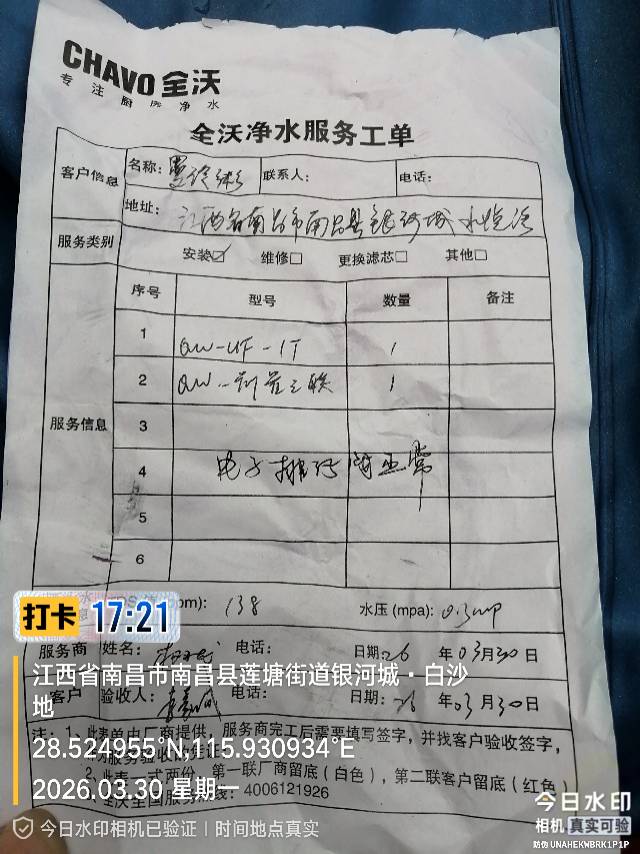 CHAVO 全沃
专注厨房净水
全沃净水服务工单
客户信息
名称: 联系人: 电话:
地址: 江西省南昌市南昌县银河城
服务类别
安装☑ 维修□ 更换滤芯□ 其他□
服务信息
序号 型号 数量 备注
1 QW-UF-1T 1
2 QW- 1
3
4 电子排污阀正常
5
6
138 水压 (mpa): 0.3mp
服务商 姓名: 电话: 日期: 26 年 03 月 30 日
客户 验收人: 电话: 日期: 26 年 03 月 30 日
注: 1、此表单由厂商提供, 服务商完工后需要填写签字, 并找客户验收签字,
为服务验收的凭证
2、此表一式两份, 第一联厂商留底 (白色), 第二联客户留底 (红色)
全沃全国服务热线: 4006121926
打卡 17:21
江西省南昌市南昌县莲塘街道银河城·白沙
地
28.524955°N,115.930934°E
2026.03.30 星期一
今日水印相机已验证 | 时间地点真实
今日水印
相机 真实可验
防伪 UNAHEKWBRK1P1P